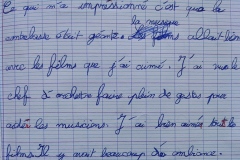 Ce qui m'a impressionné c'est que la
la musique
ambiance était géante. allait bien
avec les films que j'ai aimé. J'ai vu le
chef d'orchestre faire plein de gestes pour
aider les musiciens. J'ai bien aimé tout le
film. Il y avait beaucoup d'ambiance.